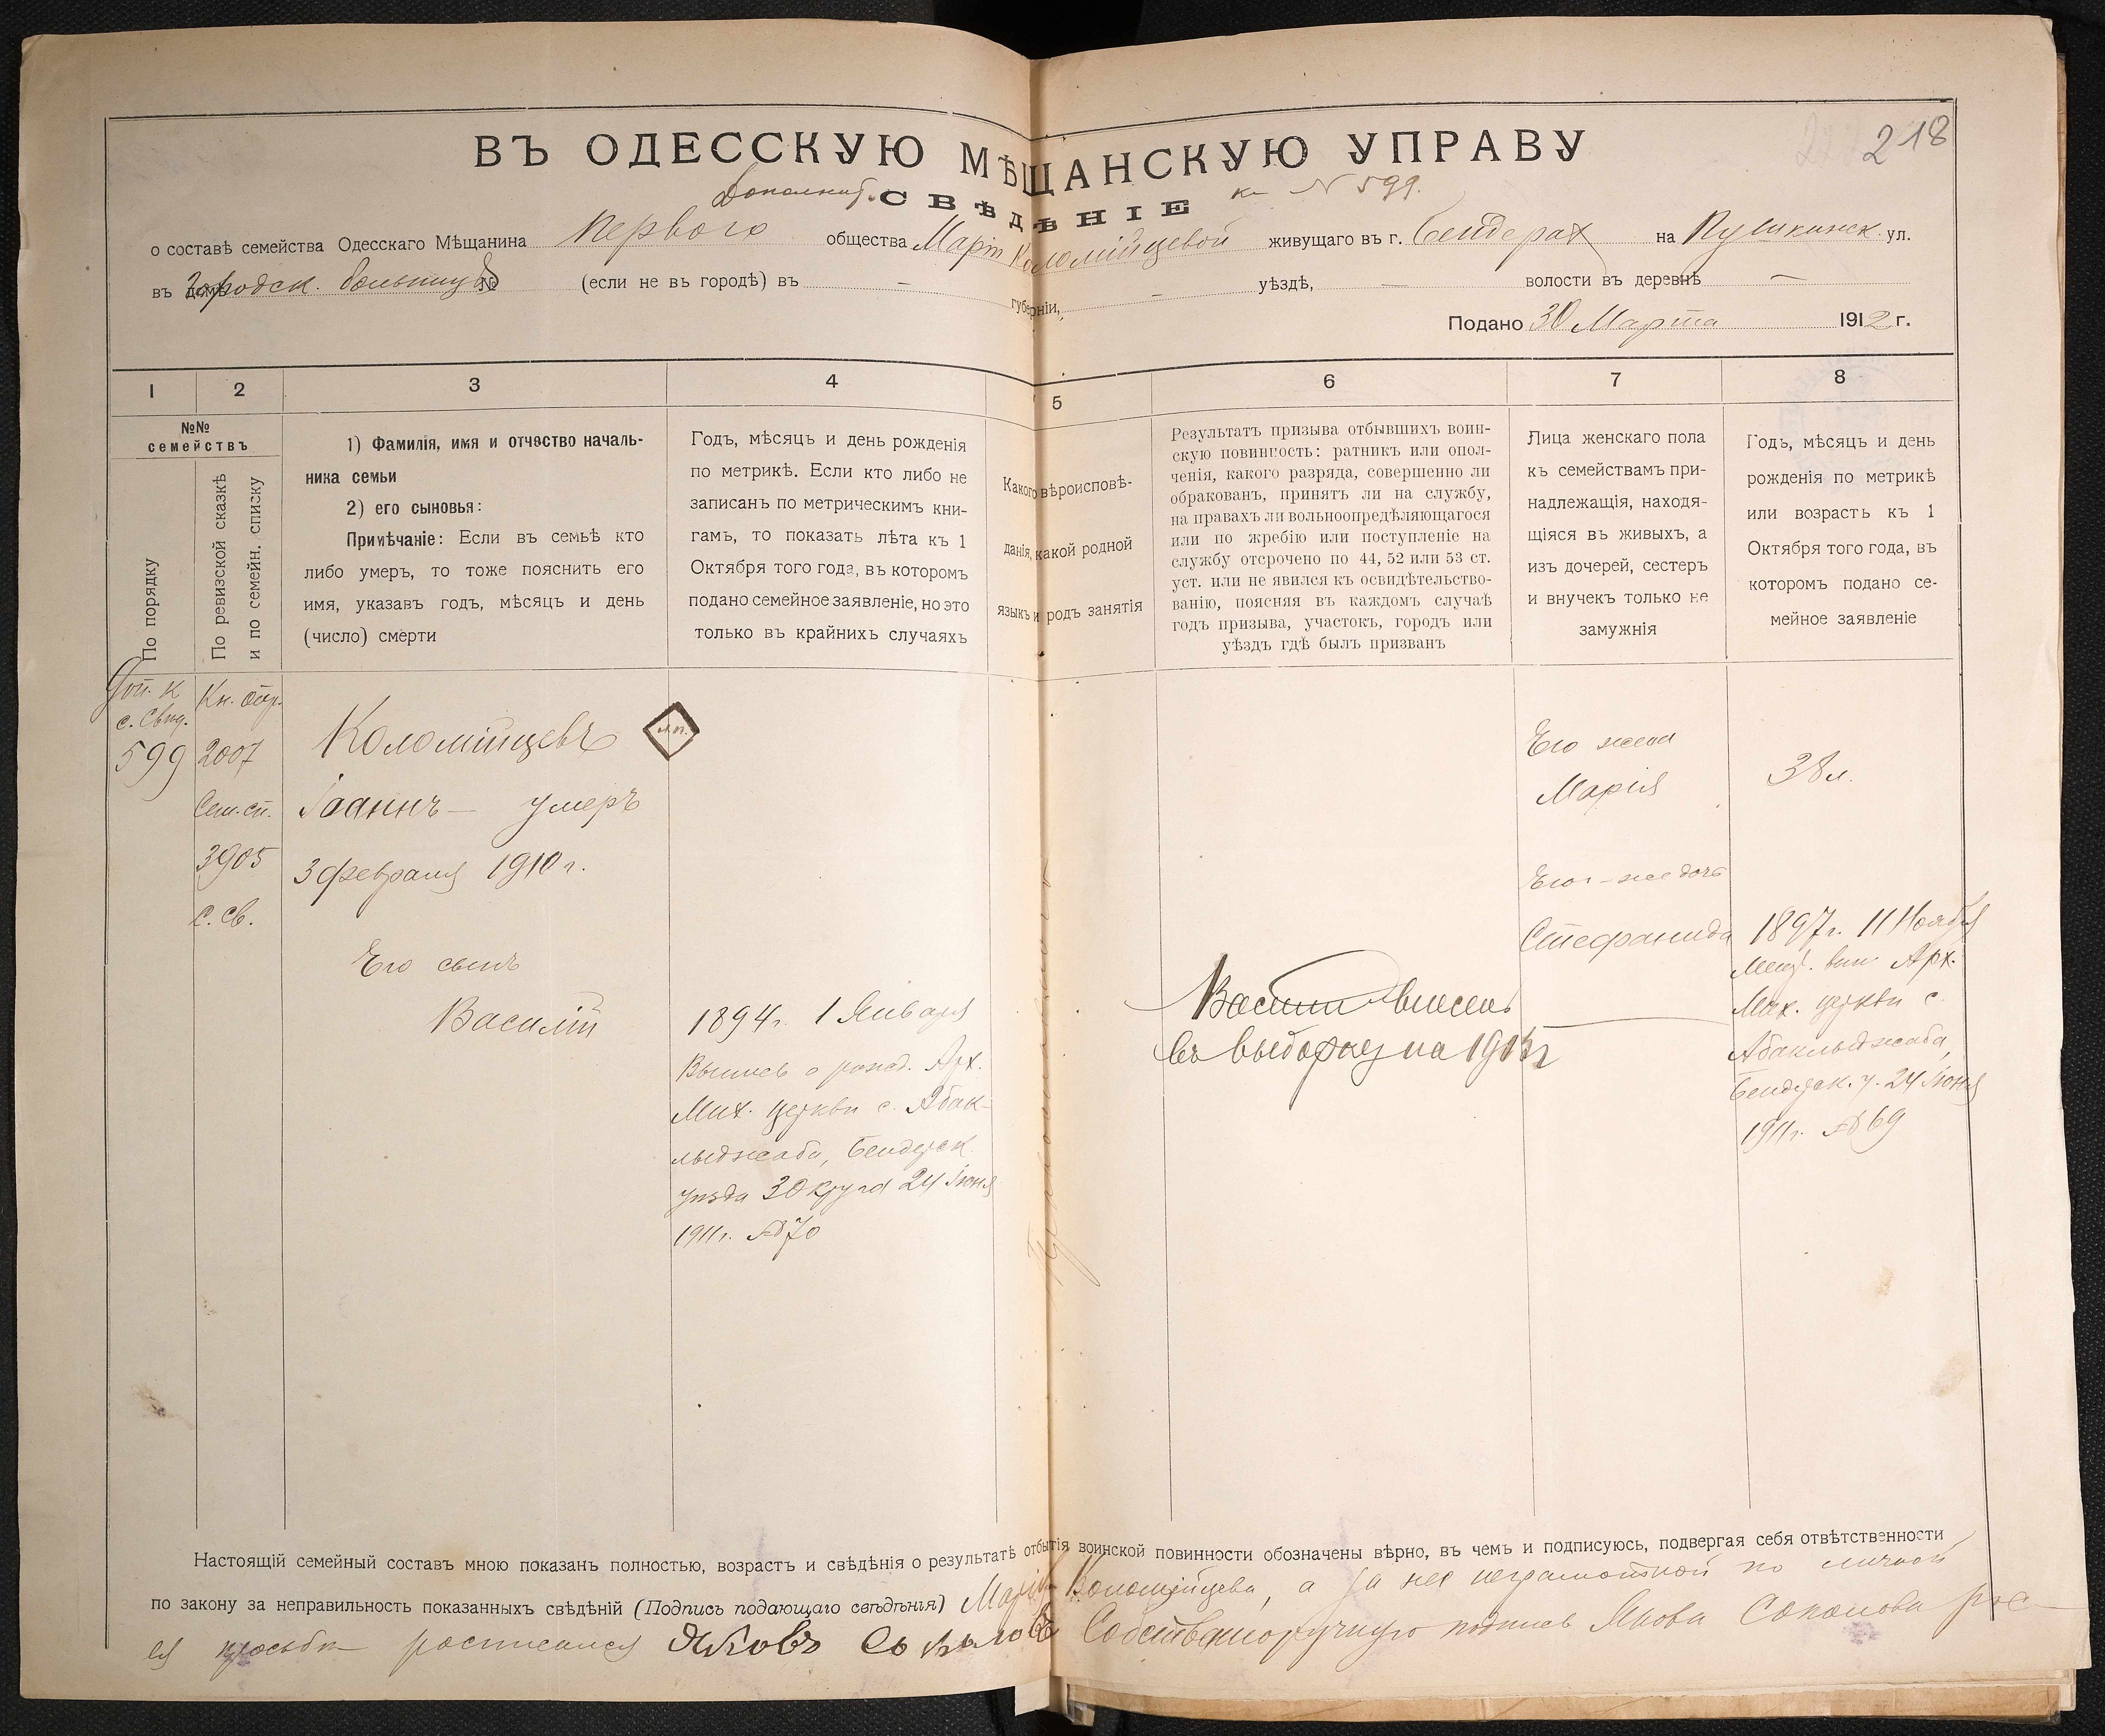 218
ВЪ ОДЕССКУЮ МѢЩАНСКУЮ УПРАВУ
Дополнит. СВѢДѢНІЕ к N 599.
о составѣ семейства Одесскаго Мѣщанина Перваго общества Маріи Коломійцевой живущаго въ г. Бендерах на Пушкинск. ул.
въ домѣ Городск. больницы № (если не въ городѣ) въ — губерніи, — уѣздѣ, — волости въ деревнѣ —
Подано 30 Марта 1912 г.
1 2 3 4 5 6 7 8
№№
семействъ
По порядку
По ревизской сказкѣ
и по семейн. списку
1) Фамилія, имя и отчество началь-
ника семьи
2) его сыновья:
Примѣчаніе: Если въ семьѣ кто
либо умеръ, то тоже пояснить его
имя, указавъ годъ, мѣсяцъ и день
(число) смерти
Годъ, мѣсяцъ и день рожденія
по метрикѣ. Если кто либо не
записанъ по метрическимъ кни-
гамъ, то показать лѣта къ 1
Октября того года, въ которомъ
подано семейное заявленіе, но это
только въ крайнихъ случаяхъ
Какого вѣроисповѣ-
данія, какой родной
языкъ и родъ занятія
Результатъ призыва отбывшихъ воин-
скую повинность: ратникъ или опол-
ченія, какого разряда, совершенно ли
обракованъ, принятъ ли на службу,
на правахъ ли вольноопредѣляющагося
или по жребію или поступленіе на
службу отсрочено по 44, 52 или 53 ст.
уст. или не явился къ освидѣтельство-
ванію, поясняя въ каждомъ случаѣ
годъ призыва, участокъ, городъ или
уѣздъ гдѣ былъ призванъ
Лица женскаго пола
къ семействамъ при-
надлежащія, находя-
щіяся въ живыхъ, а
изъ дочерей, сестеръ
и внучекъ только не
замужнія
Годъ, мѣсяцъ и день
рожденія по метрикѣ
или возрасть къ 1
Октября того года, въ
которомъ подано се-
мейное заявленіе
Доп. к
с. Свид.
599
Кн.
2007
Сем. сп.
3905
С. св.
Коломійцевъ
Іоаннъ — умеръ
3 февраля 1910 г.
Его сынъ
Василій
1894 г. 1 Января
Выпись о рожд. Арх.
Мих. церкви с. Абак-
лыджаба, Бендерск.
уѣзда 3 округа 24 Іюня
1911 г. № 70
Православнаго
Василій внесенъ
въ выборку на 1915 г
Его жена
Марія
38 л.
Его-же дочь
Стефанида
1897 г. 11 Ноября
Метр. вып. Арх.
Мих. церкви с.
Абаклыджаба,
Бендерск. у. 24 Іюня
1911 г. № 69
Настоящій семейный составъ мною показанъ полностью, возрасть и свѣдѣнія о результатѣ отбытія воинской повинности обозначены вѣрно, въ чемъ и подписуюсь, подвергая себя отвѣтственности
по закону за неправильность показанныхъ свѣдѣній (Подпись подающаго свѣдѣнія) Марія Коломійцева, а за нее неграмотной по личной
ея просьбѣ росписался Яковъ Соколовъ Собственноручную подпись Якова Соколова